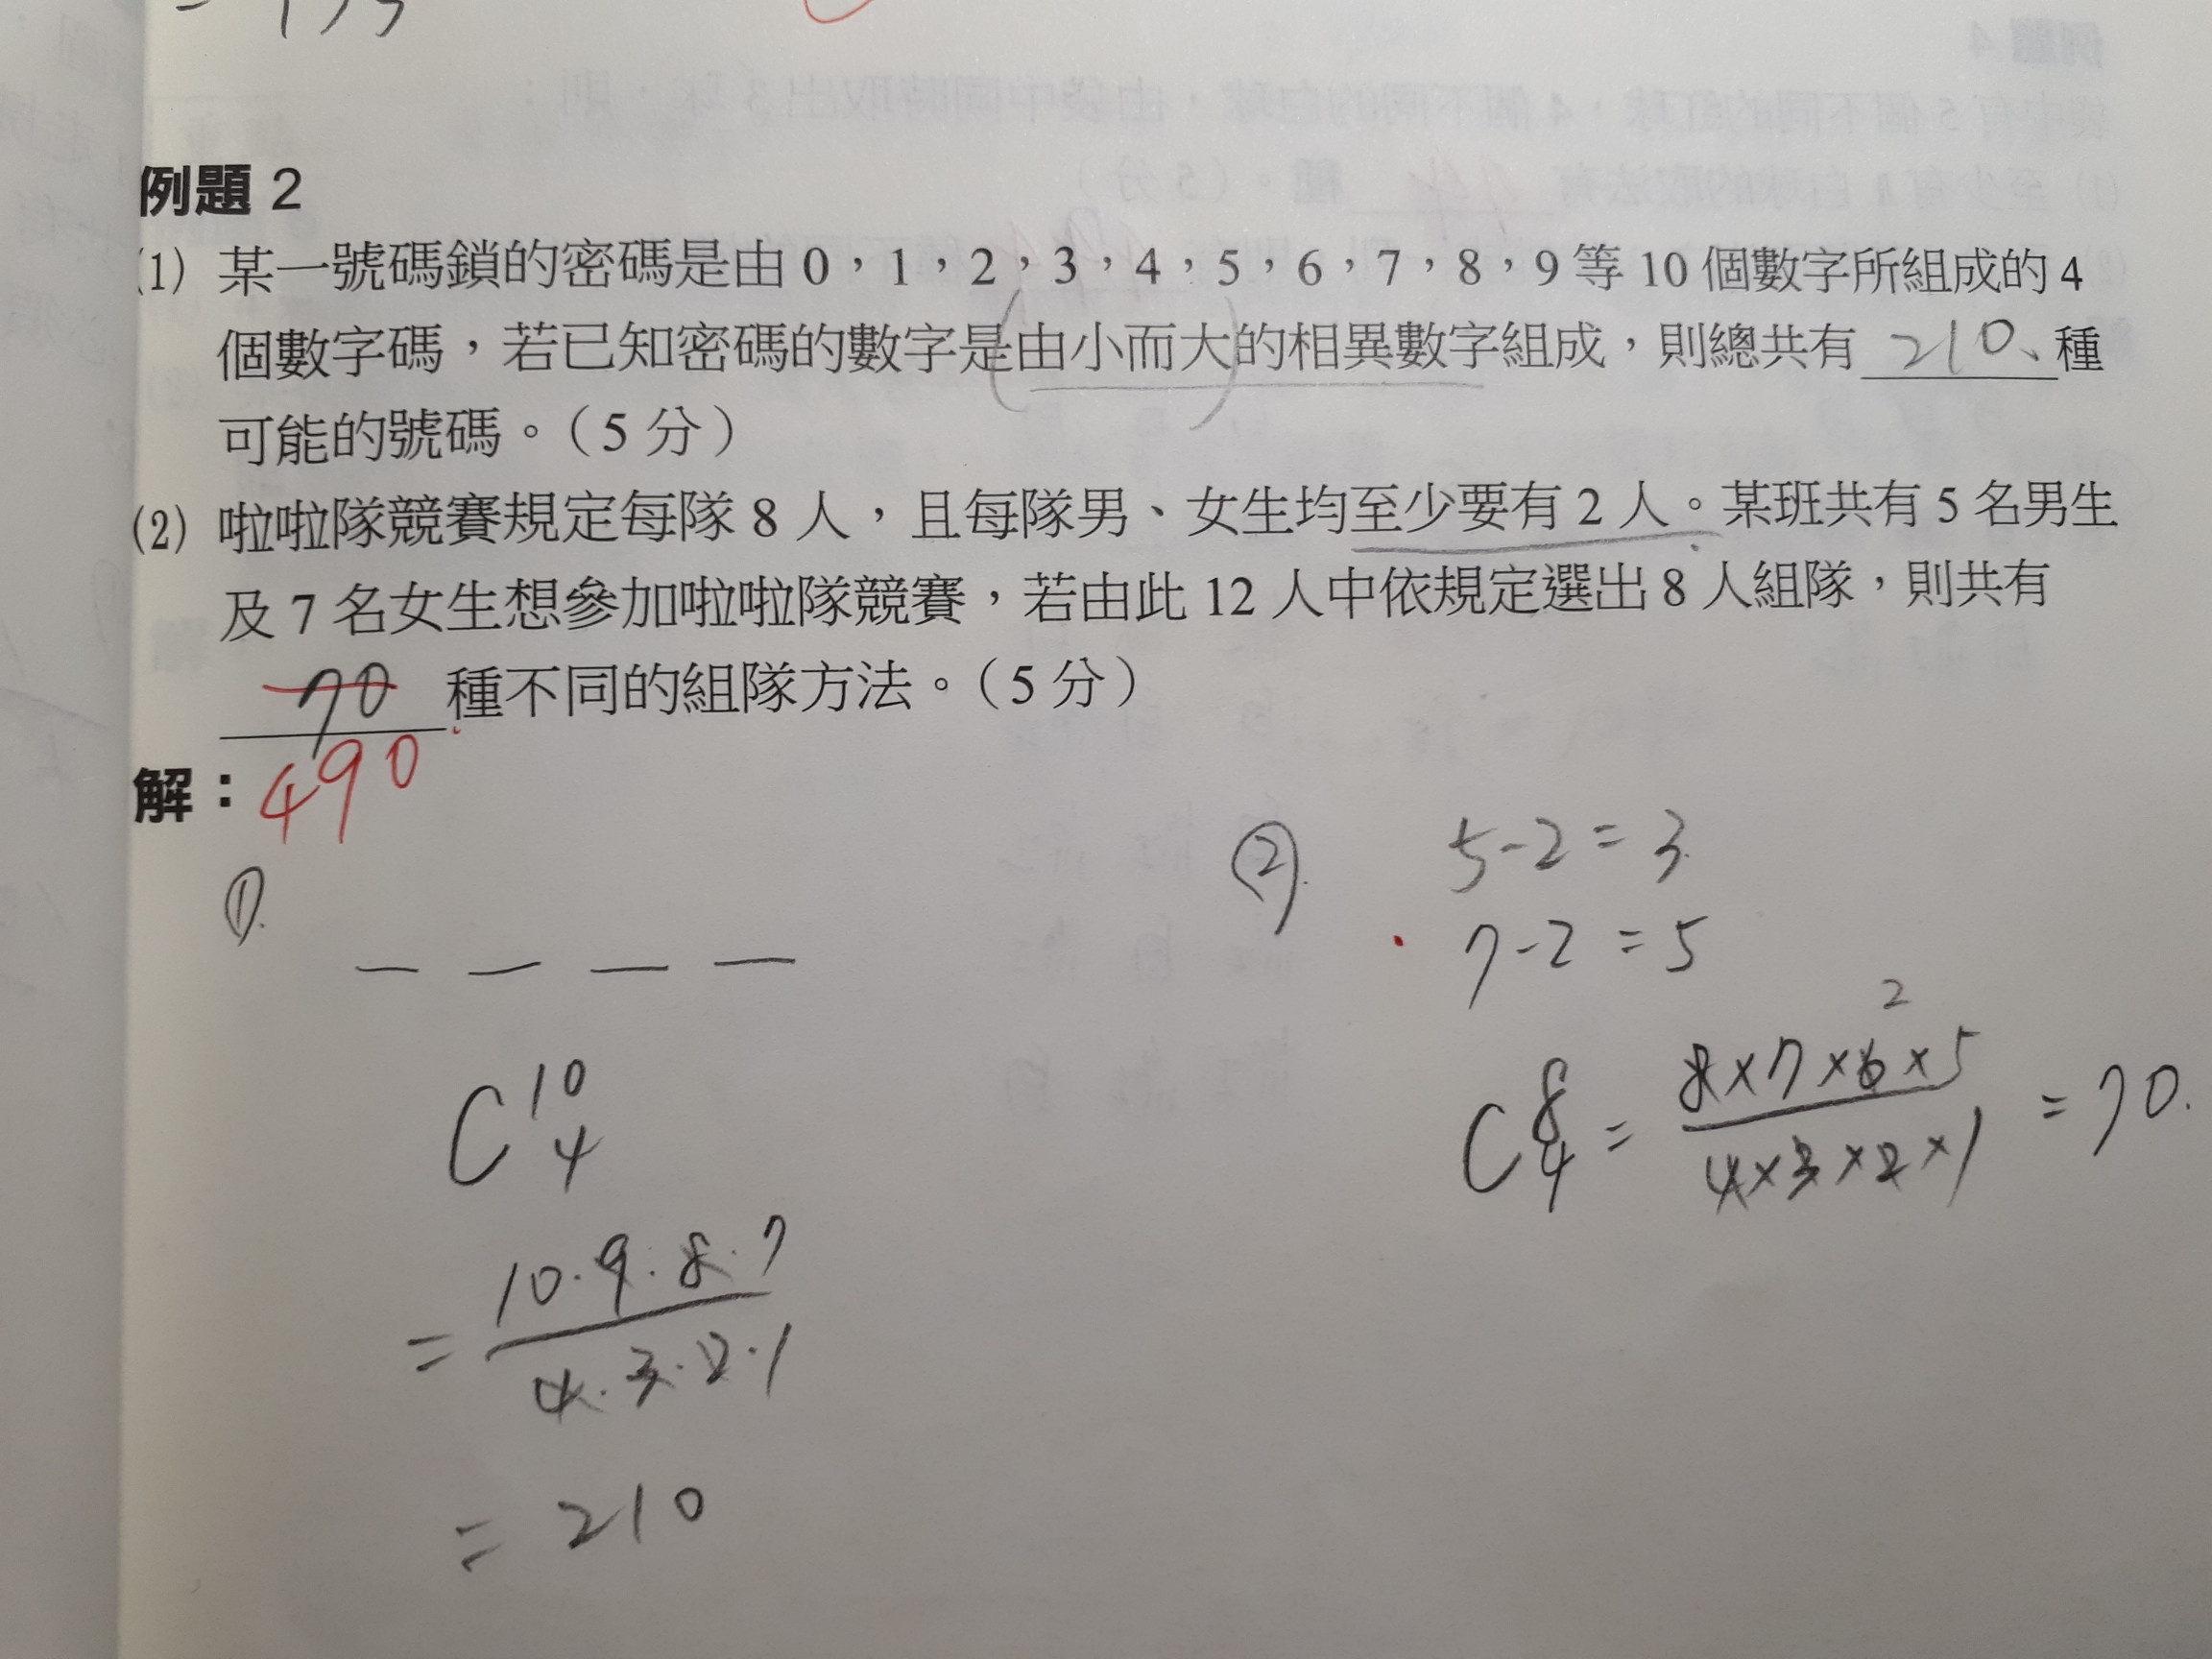 例題 2
(1) 某一號碼鎖的密碼是由 0，1，2，3，4，5，6，7，8，9 等 10 個數字所組成的 4
個數字碼，若已知密碼的數字是(由小而大)的相異數字組成，則總共有 210、種
可能的號碼。（5 分）
(2) 啦啦隊競賽規定每隊 8 人，且每隊男、女生均至少要有 2 人。某班共有 5 名男生
及 7 名女生想參加啦啦隊競賽，若由此 12 人中依規定選出 8 人組隊，則共有
70 種不同的組隊方法。（5 分）
解： 490
①.
C 10 4
= 10·9·8·7 / 4·3·2·1
= 210
②. 5-2=3
7-2=5
2
C 8 4 = 8×7×6×5 / 4×3×2×1 = 70.